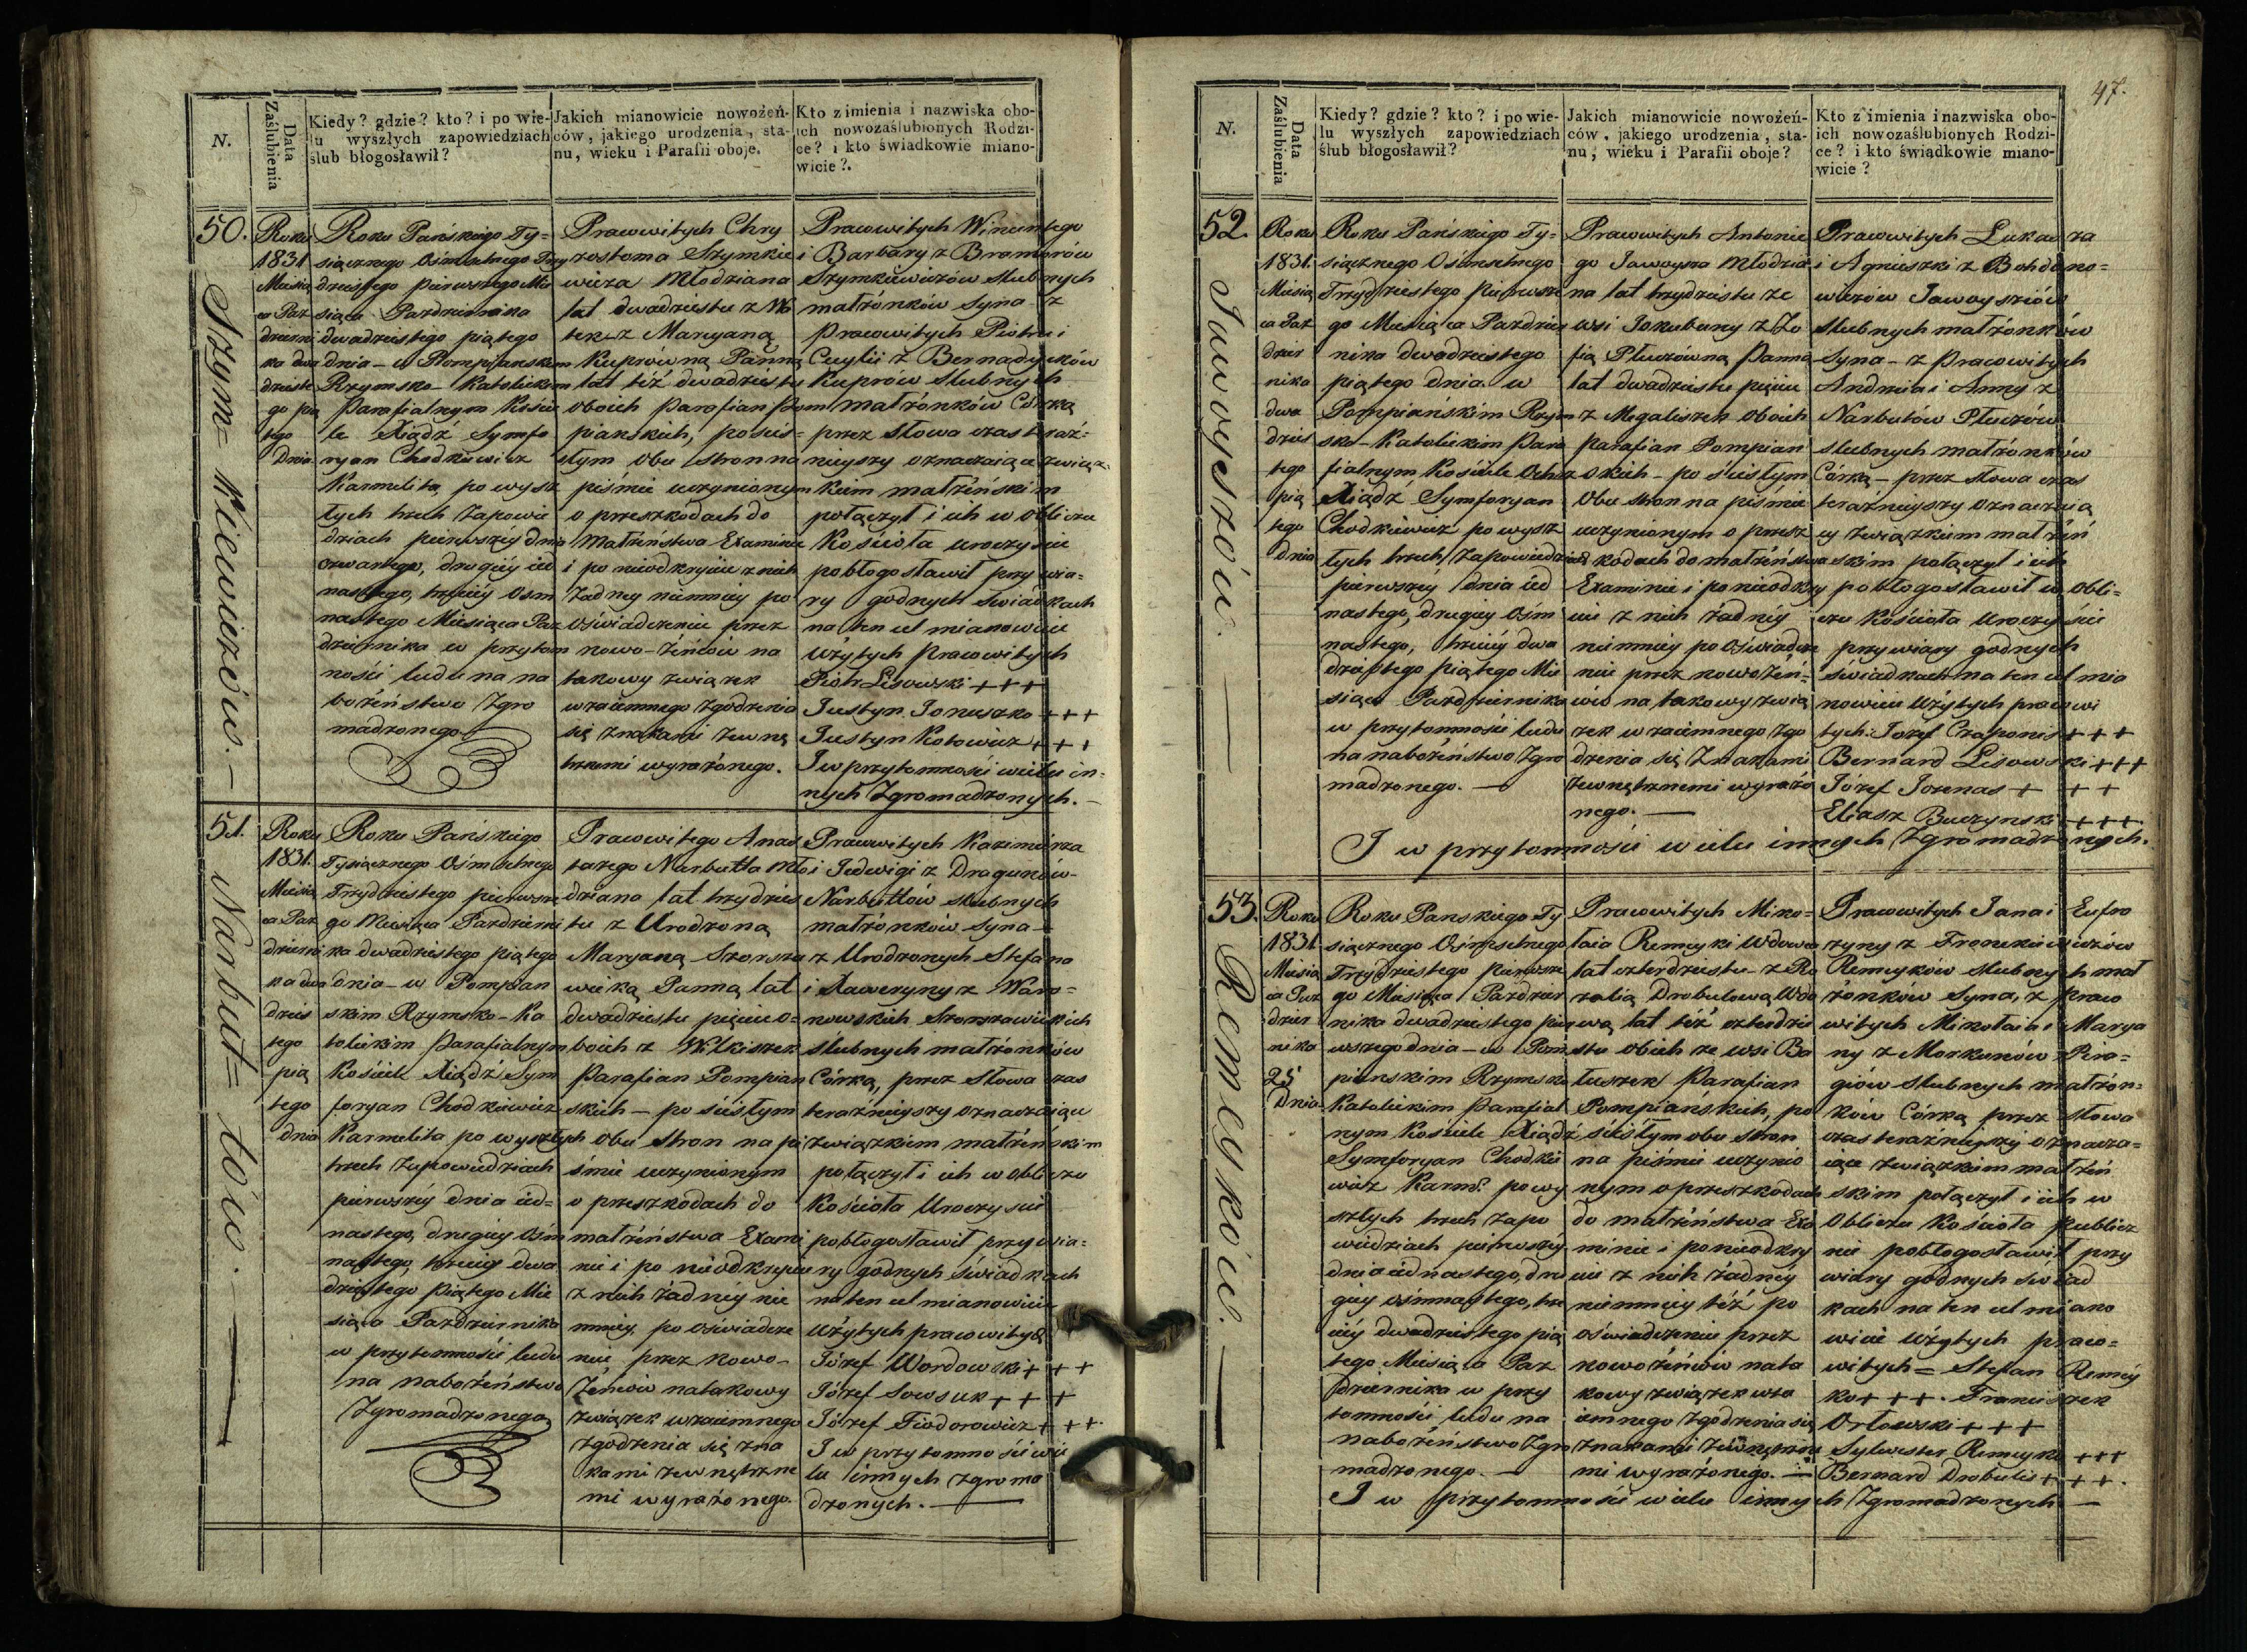 N.
Data Zaślubienia
Kiedy? gdzie? kto? i po wie-
lu wyszłych zapowiedziach
ślub błogosławił?
Jakich mianowicie nowożeń-
ców, jakiego urodzenia, sta-
nu, wieku i Parafii oboje.
Kto z imienia i nazwiska obo-
ich nowozaślubionych Rodzi-
ce? i kto świadkowie miano-
wicie?
50.
Szym=kiewiczów.
Roku
1831
Miesią
ca Paz
dzierni
ka dwa
dzieste
go pią
tego
Dnia
Roku Pańskiego Ty=
siącznego Ośmsetnego Trzy
dziestego pierwszego Mie
siąca Pazdziernika
dwadziestego piątego
dnia - w Pompianskim
Rzymsko-Katolickim
Parafialnym Koście
le Xiądz Symfo
ryan Chodkiewicz
Karmelita, po wysz
łych trzech Zapowie
dziach pierwszéy dnia
czwartego, drugiéy ied
nastego, trzeciéy Osm
nastego Miesiąca Paz
dziernika w przytom
ności ludu na na
bożeństwo Zgro
madzonego
Pracowitych Chry
zostoma Szymkie
wicza Młodziana
lat dwadziestu z
z Maryanną
Kuprowną Panną
lat téż dwadziestu
oboich Parafian Pom
pianskich, po ścis=
łym Obu stron na
piśmie uczynionym
o przeszkodach do
Matżeństwa Examinie
i po nieodkryciu z nich
żadney niemniey po
oświadczeniu przez
nowo-żeńców na
takowy związek
wzaiemnego zgodzenia
się znakami zewnę
trznemi wyrażonego.
Pracowitych Wincentego
i Barbary z Bramorów
Szymkiewiczów ślubnych
matżonków Syna - z
Pracowitych Piotra i
Cecylii z Bernadyków
Kuprów Slubnych
matżonków Córką
przez słowa czas teraź=
nieyszy oznaczaiące związ=
kiem matżeńskim
połączył i ich w obliczu
Kościoła uroczyscie
pobłogosławił przy wia=
ry godnych świadkach
na ten cel mianowicie
użytych Pracowitych
Piotr Lisowski +++
Justyn Januszko +++
Justyn Kotowicz +++
I w przytomności wielu in=
nych Zgromadzonych.
51.
Narbut=tów.
Roku
1831.
Miesią
ca Paz
dzierni
ka dwa
dzies
tego
pią
tego
dnia
Roku Pańskiego
Tysiącznego Ośmsetnego
Trzydziestego pierwsze
go Miesiąca Pazdzierni
ka dwadziestego piątego
dnia - w Pompian
skim Rzymsko-Ka
tolickim Parafialnym
Kościele Xiądz Sym
foryan Chodkiewicz
Karmelita po wyszłych
trzech Zapowiedziach
pierwszéy dnia ied=
nastego, drugiéy Ośm
nastego, trzeciéy dwa
dziestego piątego Mie
siąca Pazdziernika
w przytomności ludu
na nabożeństwo
Zgromadzonego
Pracowitego Anas
tazego Narbutta Mło
dziana lat trzydzies
tu z Urodzoną
Maryanną Szorsza
wicką Panną lat
dwadziestu pięciu o=
boich z Wilkiszek
Parafian Pompian
skich - po ścisłym
obu stron na pi
śmie uczynionym
o przeszkodach do
matżeństwa Exami
nie i po nieodkryciu
z nich żadnéy nie
mniéy, po oświadcze
niu przez nowo-
Żeńców na takowy
związek wzaiemnego
zgodzenia się zna
kami zewnętrzne
mi wyrażonego.
Pracowitych Kazimierza
i Jedwigi z Dragunów-
Narbuttów slubnych
matżonków Syna -
z Urodzonych Stefana
i Xaweryny z Waro=
nowskich Szorszawickich
slubnych matżonków
Córką, przez słowa czas
teraźnieyszy oznaczaiące
związkiem matżeńskim
połączył i ich w obliczu
Kościoła Uroczyscie
pobłogosławił przy wia=
ry godnych świadkach
na ten cel mianowicie
użytych pracowitych
Józef Wordowski +++
Józef Sowsuk +++
Józef Fiodorowicz +++
I w przytomności wie
lu innych zgroma
dzonych.
47.
N.
Data Zaślubienia
Kiedy? gdzie? kto? i po wie-
lu wyszłych zapowiedziach
ślub błogosławił?
Jakich mianowicie nowożeń-
ców, jakiego urodzenia, sta-
nu, wieku i Parafii oboje?
Kto z imienia i nazwiska obo-
ich nowozaślubionych Rodzi-
ce? i kto świadkowie miano-
wicie?
52.
Jawoyszów.
Roku
1831.
Miesią
ca Paz
dzier
nika
dwa
dzies
tego
pią
tego
dnia
Roku Pańskiego Ty=
siącznego Osmsetnego
Trzydziestego Pierwsze
go Miesiąca Pazdzier
nika dwadziestego
piątego dnia w
Pompiańskim Rzym
sko-Katolickim Para
fialnym Kościele
Xiądz Symforyan
Chodkiewicz po wysz
łych trzech Zapowiedziach
pierwszéy dnia ied
nastego, drugiey Ośm
nastego, trzeciéy dwa
dziestego piątego Mie
siąca Pazdziernika
w przytomności ludu
na nabożeństwo Zgro
madzonego.
Pracowitych Antonie
go Jawoysza Młodzia
na lat trzydziestu ze
wsi Jokubany z Zo
fią Płuczówną Panną
lat dwadziestu pięciu
z Migaliszek oboich
parafian Pompian
skich - po ścisłym
Obu stron na piśmie
uczynionym o przesz
kodach do matżeństwa
Examinie i po nieodkry
ciu z nich żadnéy
niemniéy po oświadcze
niu przez nowożeń=
ców na takowy zwią
zek wzaiemnego zgo
dzenia się Znakami
zewnętrznemi wyrażo
nego.
Pracowitych Łukasza
i Agnieszki z Bohdano=
wiczów Jawoyszów
Slubnych matżonków
Syna - z Pracowitych
Andrzeia i Anny z
Narbutów Płuczów
slubnych matżonków
Córką - przez słowa czas
teraźnieyszy oznaczaią
cy związkiem matżeń
skim połączył i ich
pobłogosławił w obli=
czu Kościoła Uroczyście
przy wiary godnych
świadkach na ten cel mia
nowicie użytych pracowi
tych. Jozef Czaponis +++
Bernard Lisowski +++
Józef Jozenas +++
Eliasz Buczynski +++
I w przytomności wielu innych Zgromadzonych.
53.
Remeyków.
Roku
1831.
Miesią
ca Paz
dzier
nika
25
Dnia
Roku Panskiego Ty
siącznego Ośmsetnego
Trzydziestego pierwsze
go Miesiąca Pazdzier
nika dwadziestego pier
wszego dnia - w Pom
pianskim Rzymsko
Katolickim Parafial
nym Kościele Xiądz
Symforyan Chodkie
wicz Karml. po wy
szłych trzech zapo
wiedziach pierwszéy
dnia iednastego, dru
giéy ośmnastego, trze
ciéy dwadziestego pią
tego Miesiąca Paz
dziernika w przy
tomności ludu na
nabożeństwo Zgro
madzonego.
Pracowitych Miko=
łaia Remeyki Wdowca
lat czterdziestu - z Ro
zalią Drobulową Wdo
wą lat téż czterdzie
stu obich ze wsi Ba
łuszek Parafian
Pompiańskich, po
ścisłym obu stron
na piśmie uczynio
nym o przeszkodach
do matżeństwa Exa
minie i po nieodkry
ciu z nich żadnéy
niemniéy téż po
oświadczeniu przez
nowożeńców na ta
kowy związek wza
iemnego zgodzenia się
znakami zewnętrzne
mi wyrażonego.
Pracowitych Jana i Eufro
zyny z Fronckiewiczów
Remeyków slubnych mał
żonków Syna, z praco
witych Mikołaia i Marya
ny z Markunów Pira=
giów slubnych matżon=
ków Córką przez słowa
czas teraźnieyszy oznacza=
iące związkiem matżeń
skim połączył i ich w
Obliczu Kościoła publicz
nie pobłogosławił przy
wiary godnych świad
kach na ten cel miano
wicie użytych praco=
witych = Stefan Reméy
ko +++. Franciszek
Orłowski +++
Sylwester Remeyko +++
Bernard Drobulis +++.
I w przytomności wielu innych Zgromadzonych